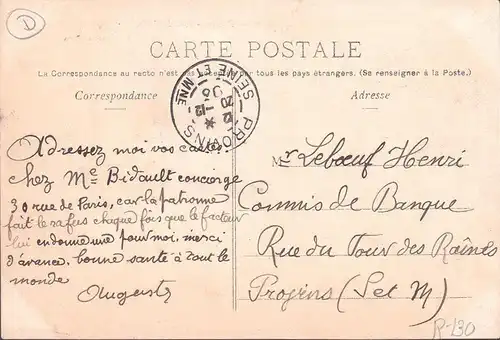 D
CARTE POSTALE
La Correspondance au recto n'est pas acceptée par tous les pays étrangers. (Se renseigner à la Poste.)
Correspondance
Adresse
PROVINS
SEINE ET MNE
12
20-12
06
Adressez moi vos cartes
chez Me Bidault concierge
30 rue de Paris, car la patronne
fait le rafus chaque fois que le facteur
lui en donne une pour moi, merci
d'avance, bonne santé à tout le
monde
Auguste
Mr Lebœuf Henri
Commis de Banque
Rue du Tour des Raines
Provins (S et M)
R-130